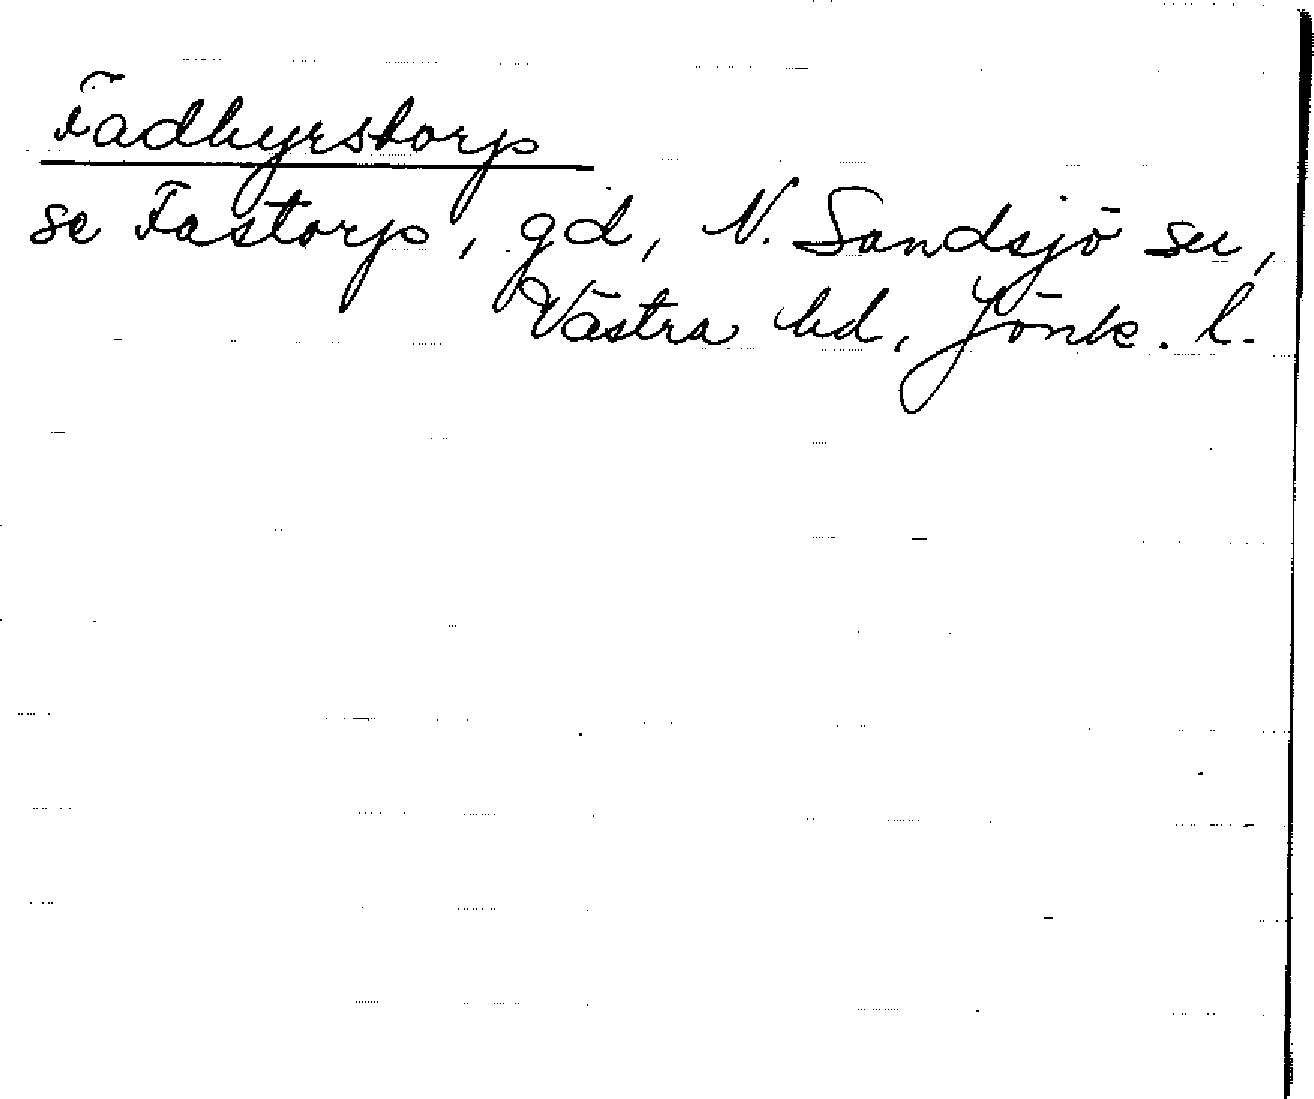 Fadhyrstorp
se Fastorp, gd, N. Sandsjö sn,
Västra hd, Jönk. l.